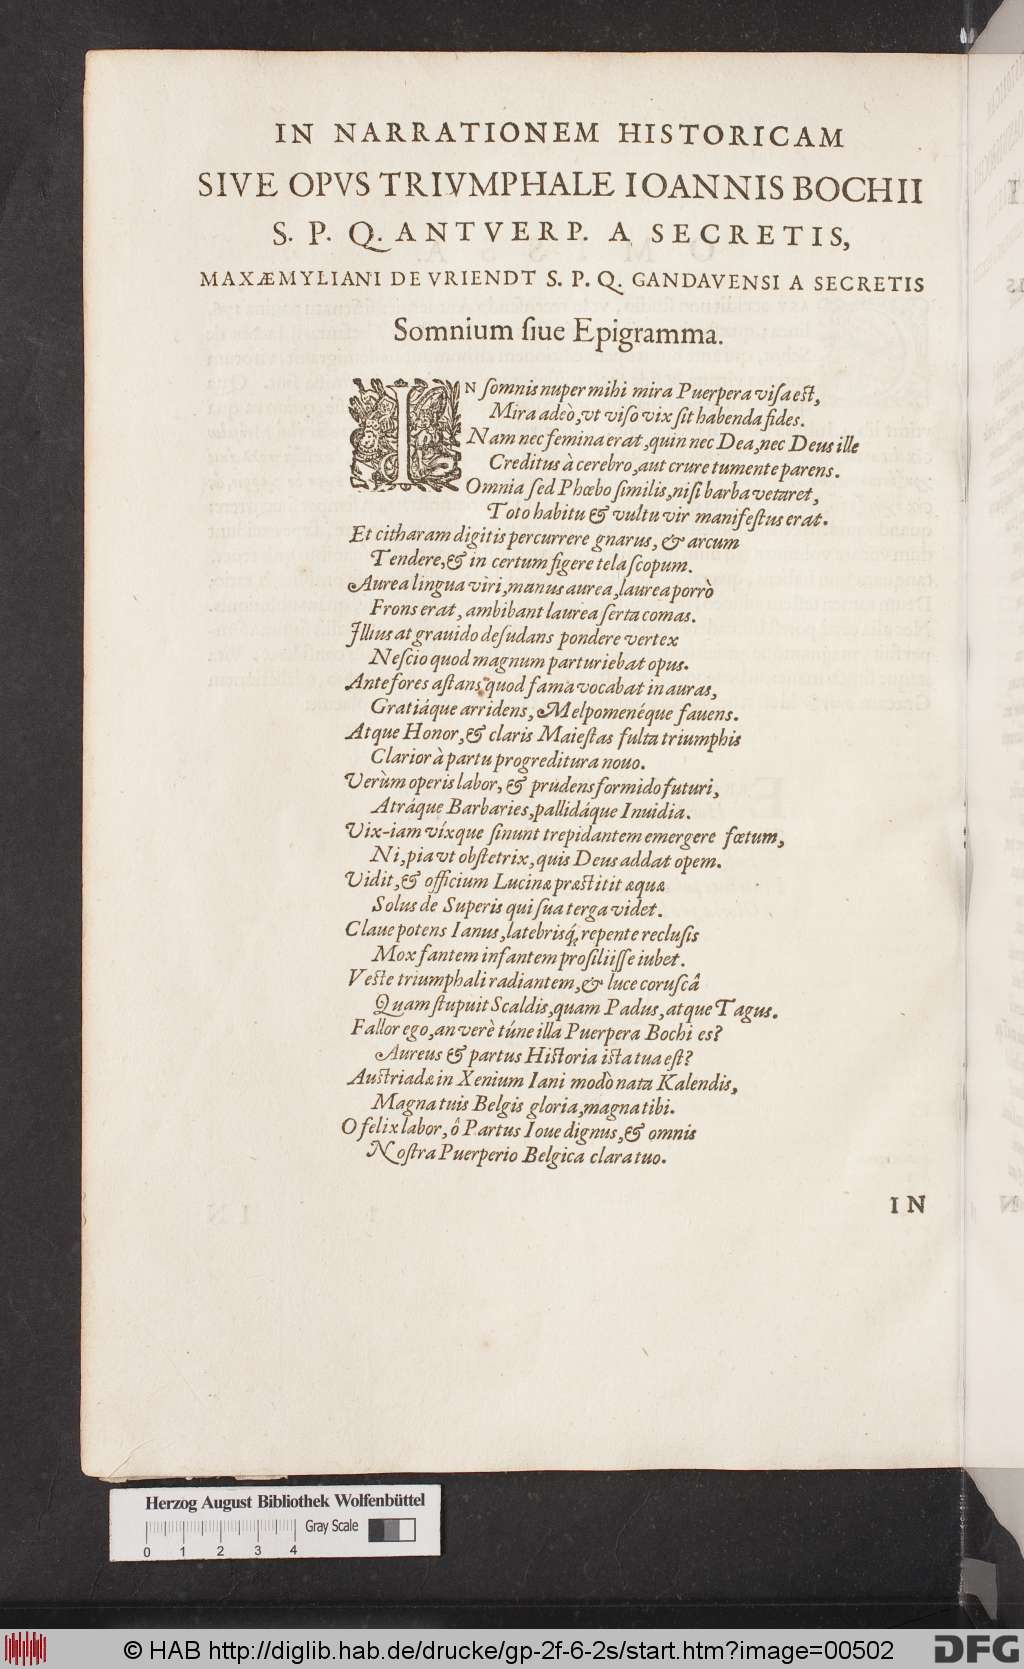 IN NARRATIONEM HISTORICAM
SIVE OPVS TRIVMPHALE IOANNIS BOCHII
S. P. Q. ANTVERP. A SECRETIS,
MAXÆMYLIANI DE VRIENDT S. P. Q. GANDAVENSI A SECRETIS
Somnium ſiue Epigramma.
IN ſomnis nuper mihi mira Puerpera viſa eſt,
Mira adeò, vt viſo vix ſit habenda fides.
Nam nec femina erat, quin nec Dea, nec Deus ille
Creditus à cerebro, aut crure tumente parens.
Omnia ſed Phœbo ſimilis, niſi barba vetaret,
Toto habitu & vultu vir manifeſtus erat.
Et citharam digitis percurrere gnarus, & arcum
Tendere, & in certum figere tela ſcopum.
Aurea lingua viri, manus aurea, laurea porrò
Frons erat, ambibant laurea ſerta comas.
Illius at grauido deſudans pondere vertex
Neſcio quod magnum parturiebat opus.
Ante fores aſtans, quod fama vocabat in auras,
Gratiáque arridens, Melpomenéque fauens.
Atque Honor, & claris Maieſtas fulta triumphis
Clarior à partu progreditura nouo.
Verùm operis labor, & prudens formido futuri,
Atráque Barbaries, pallidáque Inuidia.
Vix-iam víxque ſinunt trepidantem emergere fœtum,
Ni, pia vt obſtetrix, quis Deus addat opem.
Vidit, & officium Lucinæ præſtitit æquæ
Solus de Superis qui ſua terga videt.
Claue potens Ianus, latebriſq́; repente recluſis
Mox fantem infantem proſiliiſſe iubet.
Veſte triumphali radiantem, & luce coruſcâ
Quam ſtupuit Scaldis, quam Padus, atque Tagus.
Fallor ego, an verè túne illa Puerpera Bochi es?
Aureus & partus Hiſtoria iſta tua eſt?
Auſtriadæ in Xenium Iani modò nata Kalendis,
Magna tuis Belgis gloria, magna tibi.
O felix labor, ô Partus Ioue dignus, & omnis
Noſtra Puerperio Belgica clara tuo.
IN
Herzog August Bibliothek Wolfenbüttel
Gray Scale
0 1 2 3 4
© HAB http://diglib.hab.de/drucke/gp-2f-6-2s/start.htm?image=00502
DFG